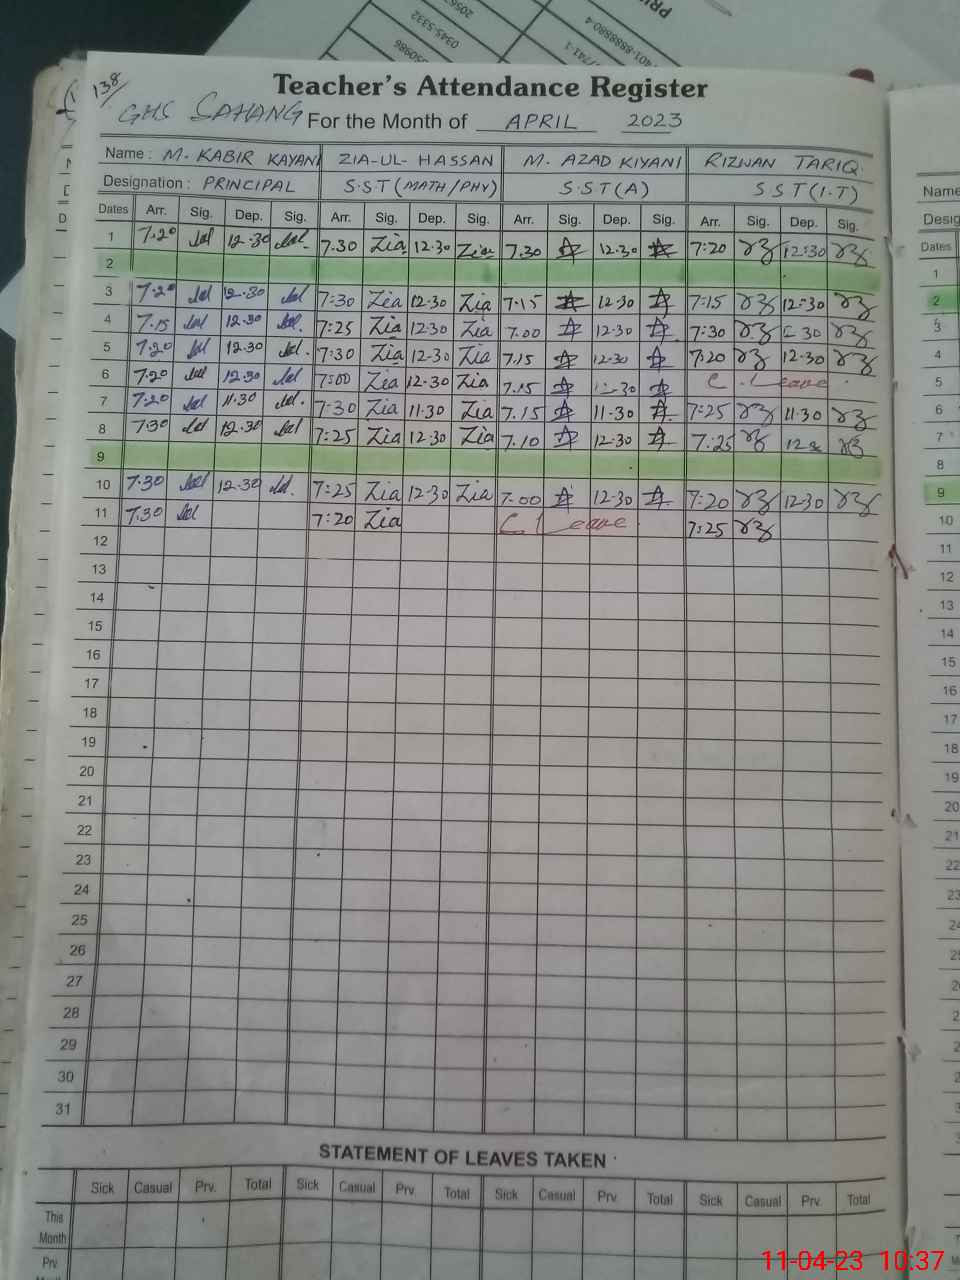 138/
Teacher's Attendance Register
GHS SAHANG For the Month of APRIL 2023
Name : M. KABIR KAYANI ZIA-UL-HASSAN M. AZAD KIYANI RIZWAN TARIQ.
Designation : PRINCIPAL S.S.T(MATH/PHY) S.S.T(A) S.S.T(I.T)
Dates Arr. Sig. Dep. Sig. Arr. Sig. Dep. Sig. Arr. Sig. Dep. Sig. Arr. Sig. Dep. Sig.
1 7.20 12.30 7.30 Zia 12.30 Zia 7.30 12.30 7:20 12:30
2
3 7.20 12.30 7:30 Zia 12.30 Zia 7.15 12.30 7:15 12:30
4 7.15 12.30 7:25 Zia 12.30 Zia 7.00 12.30 7:30 30
5 7.20 12.30 7:30 Zia 12.30 Zia 7.15 12.30 7:20 12.30
6 7.20 12.30 7:00 Zia 12.30 Zia 7.15 30 C. Leave
7 7.20 11.30 7:30 Zia 11.30 Zia 7.15 11.30 7:25 11.30
8 7.30 12.30 7:25 Zia 12.30 Zia 7.10 12.30 7:25
9
10 7.30 12.30 7:25 Zia 12.30 Zia 7.00 12.30 7:20 12.30
11 7.30 7:20 Zia C Leave 7:25
12
13
14
15
16
17
18
19
20
21
22
23
24
25
26
27
28
29
30
31
STATEMENT OF LEAVES TAKEN
Sick Casual Prv. Total Sick Casual Prv. Total Sick Casual Prv. Total Sick Casual Prv. Total
This
Month
Prv.
11-04-23 10:37